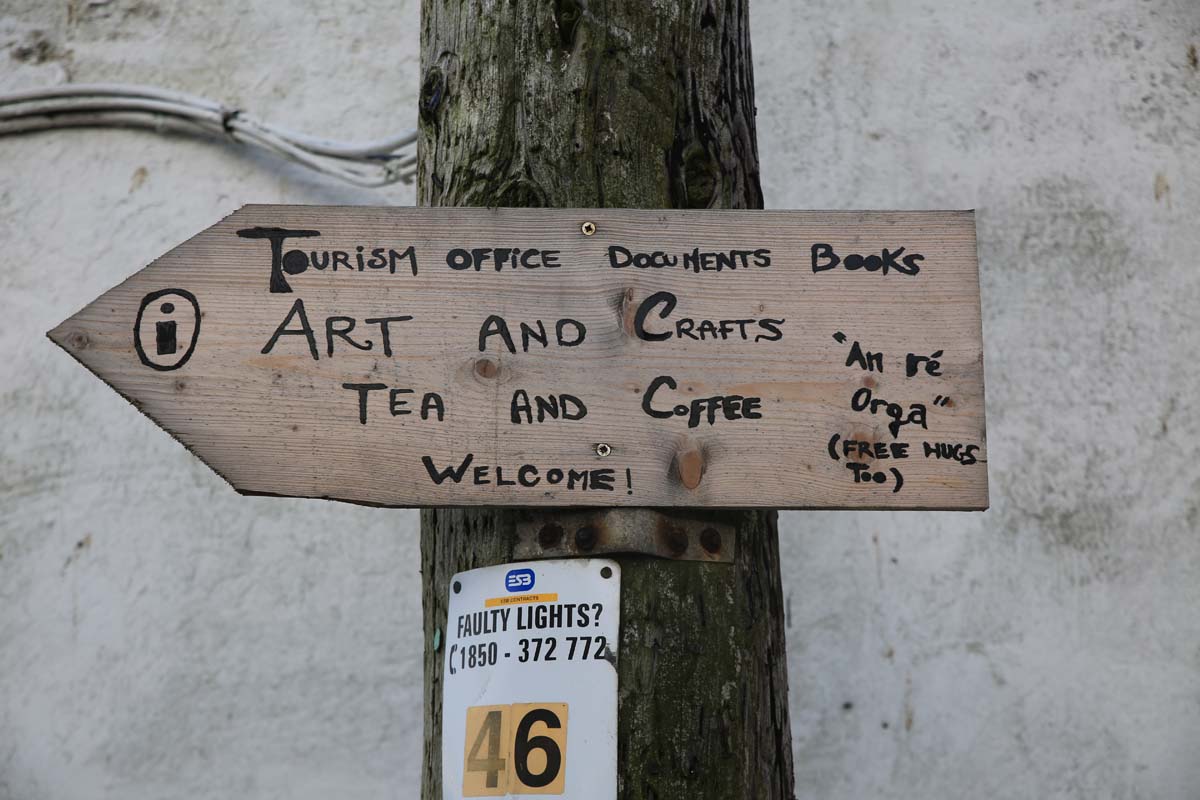 Tourism office Documents Books
i
Art and Crafts
Tea and Coffee
Welcome!
"An ré
Orga"
(Free Hugs
Too)
ESB
ESB CONTRACTS
FAULTY LIGHTS?
1850 - 372 772
46